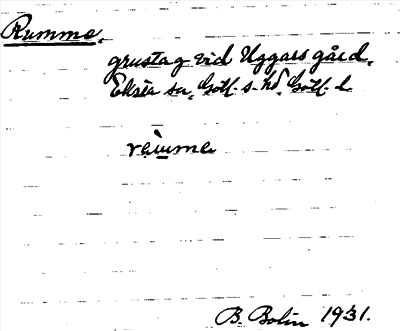 Rumme,
grustag vid Uggars gård,
Eksta sn, Gotl. s. hd, Gotl. l.
B. Bolin 1931.